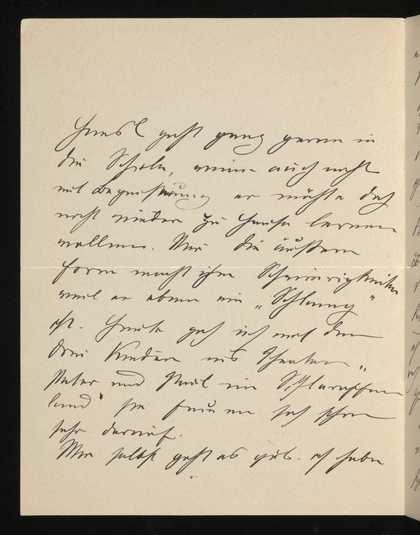 Hansl geht ganz gerne in
die Schule, wenn auch nicht
mit Begeisterung er möchte doch
nicht wieder zu Hause lernen
wollen. Nur die äußere
Form macht ihm Schwierigkeiten
weil er eben ein „Schlamp"
ist. Heute geh ich mit den
drei Kindern ins Theater „
Peter und Paul im Schlaraffen
land" sie freuen sich schon
sehr darauf.
Mir selbst geht es gut. ich habe